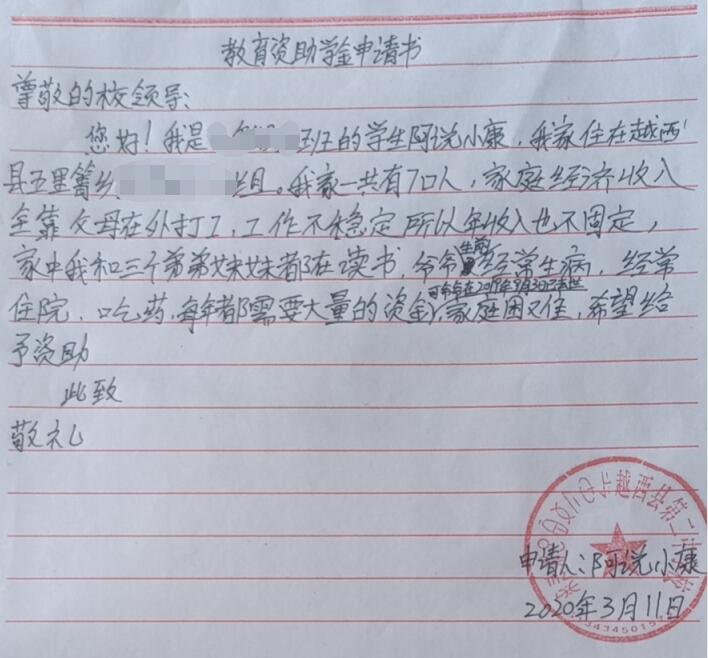 教育资助学金申请书
尊敬的校领导：
您好！我是 班的学生阿说小康，我家住在越西
县五里箐乡 组。我家一共有7口人，家庭经济收入
全靠父母在外打工，工作不稳定所以年收入也不固定，
家中我和三个弟弟妹妹都在读书，爷爷生前经常生病，经常
可爷爷在2019年9月3日已去世
住院、吃药，每年都需要大量的资金，家庭困难，希望给
予资助
此致
敬礼
越西县第二
申请人：阿说小康
2020年3月11日